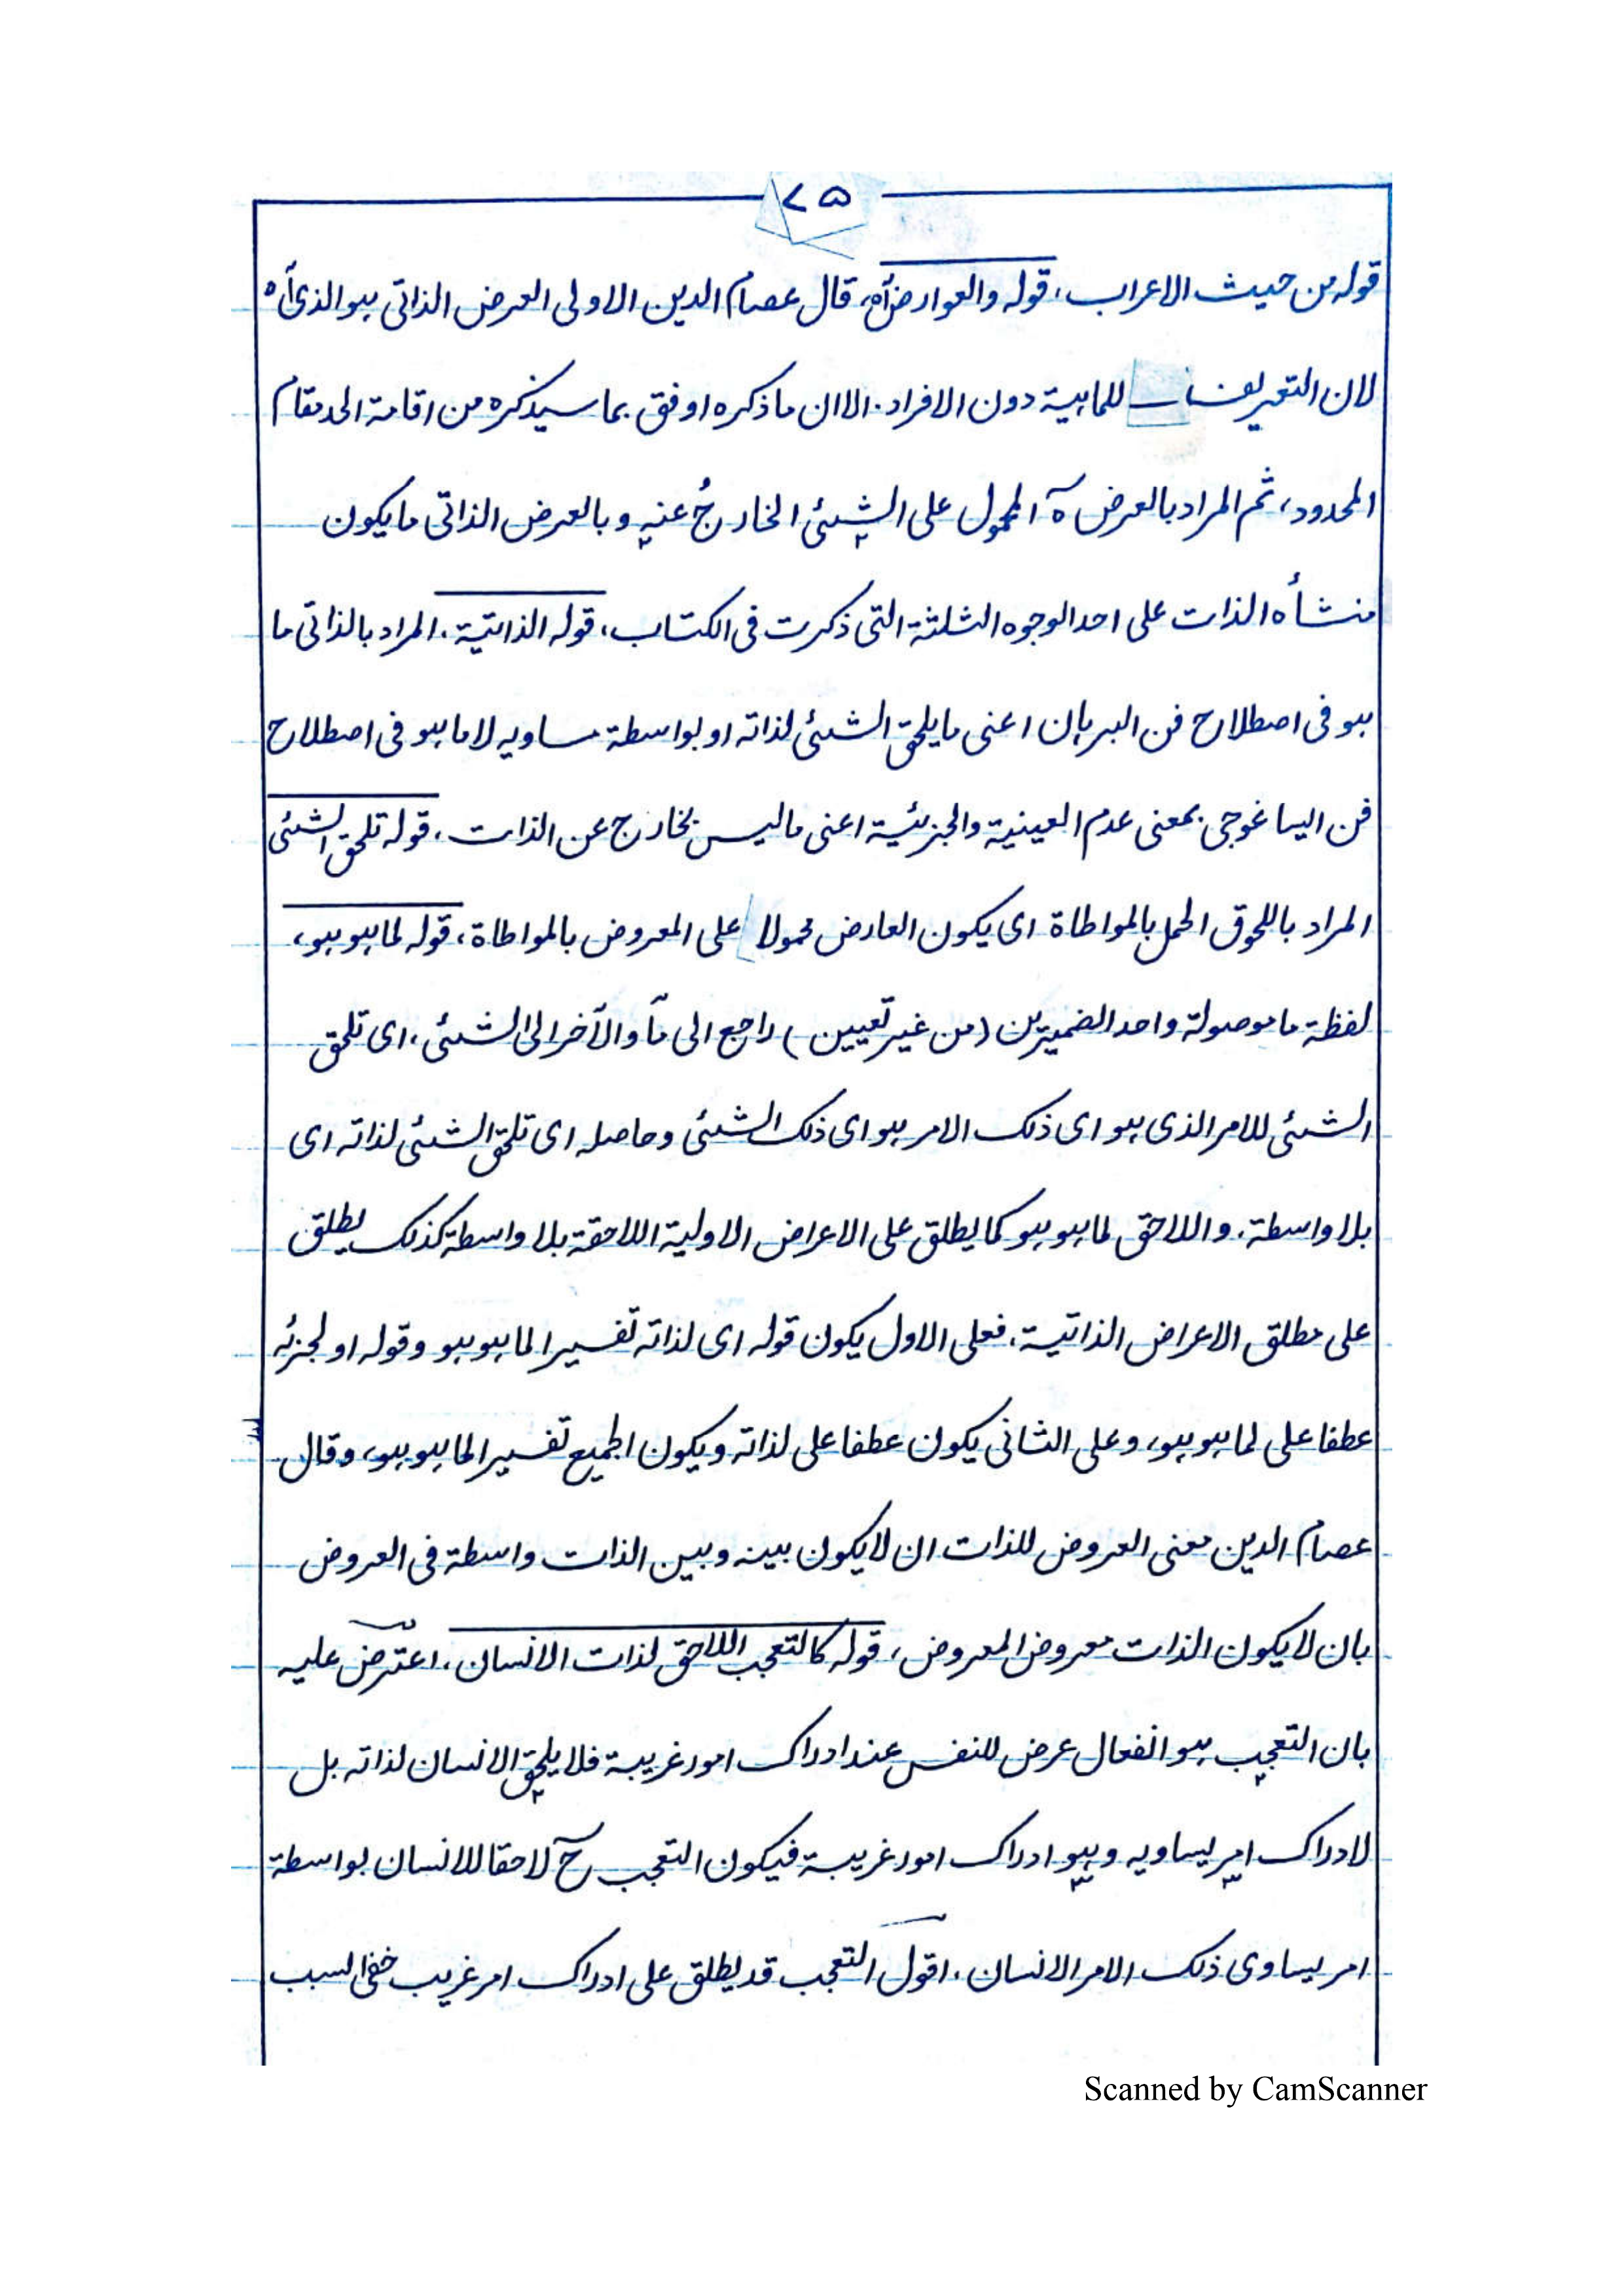 ٢٥
قوله من حيث الاعراب، قوله والعوارض آه، قال عصام الدين الاولى العرض الذاتى هو الذى آه
لان التعريفات للماهية دون الافراد. الا ان ما ذكره اوفق بما سيذكره من اقامة الحد مقام
المحدود، ثم المراد بالعرض آه المحمول على الشيئ الخارجُ عنه وبالعرض الذاتى ما يكون
منشأه الذات على احد الوجوه الثلثة التى ذكرت فى الكتاب، قوله الذاتية، المراد بالذاتى ما
هو فى اصطلاح فن البرهان اعنى ما يلحق الشيئ لذاته او بواسطة مساويه لا ما هو فى اصطلاح
فن ايساغوجى بمعنى عدم العينية والجزئية اعنى ما ليس بخارج عن الذات، قوله تلحق الشيئ
المراد باللحوق الحمل بالمواطاة اى يكون العارض محمولا على المعروض بالمواطاة، قوله لما هو هو،
لفظة ما موصولة واحد الضميرين (من غير تعيين) راجع الى مآ والآخر الى الشيئ، اى تلحق
الشيئ للامر الذى هو اى ذلك الامر هو اى ذلك الشيئ وحاصله اى تلحق الشيئ لذاته اى
بلا واسطة. واللاحق لما هو هو كما يطلق على الاعراض الاولية اللاحقة بلا واسطة كذلك يطلق
على مطلق الاعراض الذاتية، فعلى الاول يكون قوله اى لذاته تفسيرا لما هو هو وقوله او لجزئه
عطفا على لما هو هو، وعلى الثانى يكون عطفا على لذاته ويكون الجميع تفسيرا لما هو هو، وقال
عصام الدين معنى العروض للذات ان لا يكون بينه وبين الذات واسطة فى العروض
بان لا يكون الذات معروض المعروض، قوله كالتعجب اللاحق لذات الانسان، اعترض عليه
بان التعجب هو انفعال عرض للنفس عند ادراك امور غريبة فلا يلحق الانسان لذاته بل
لادراك امر يساويه وهو ادراك امور غريبة فيكون التعجب ح لاحقا للانسان بواسطة
امر يساوى ذلك الامر الانسان، اقول التعجب قد يطلق على ادراك امر غريب خفى السبب
Scanned by CamScanner